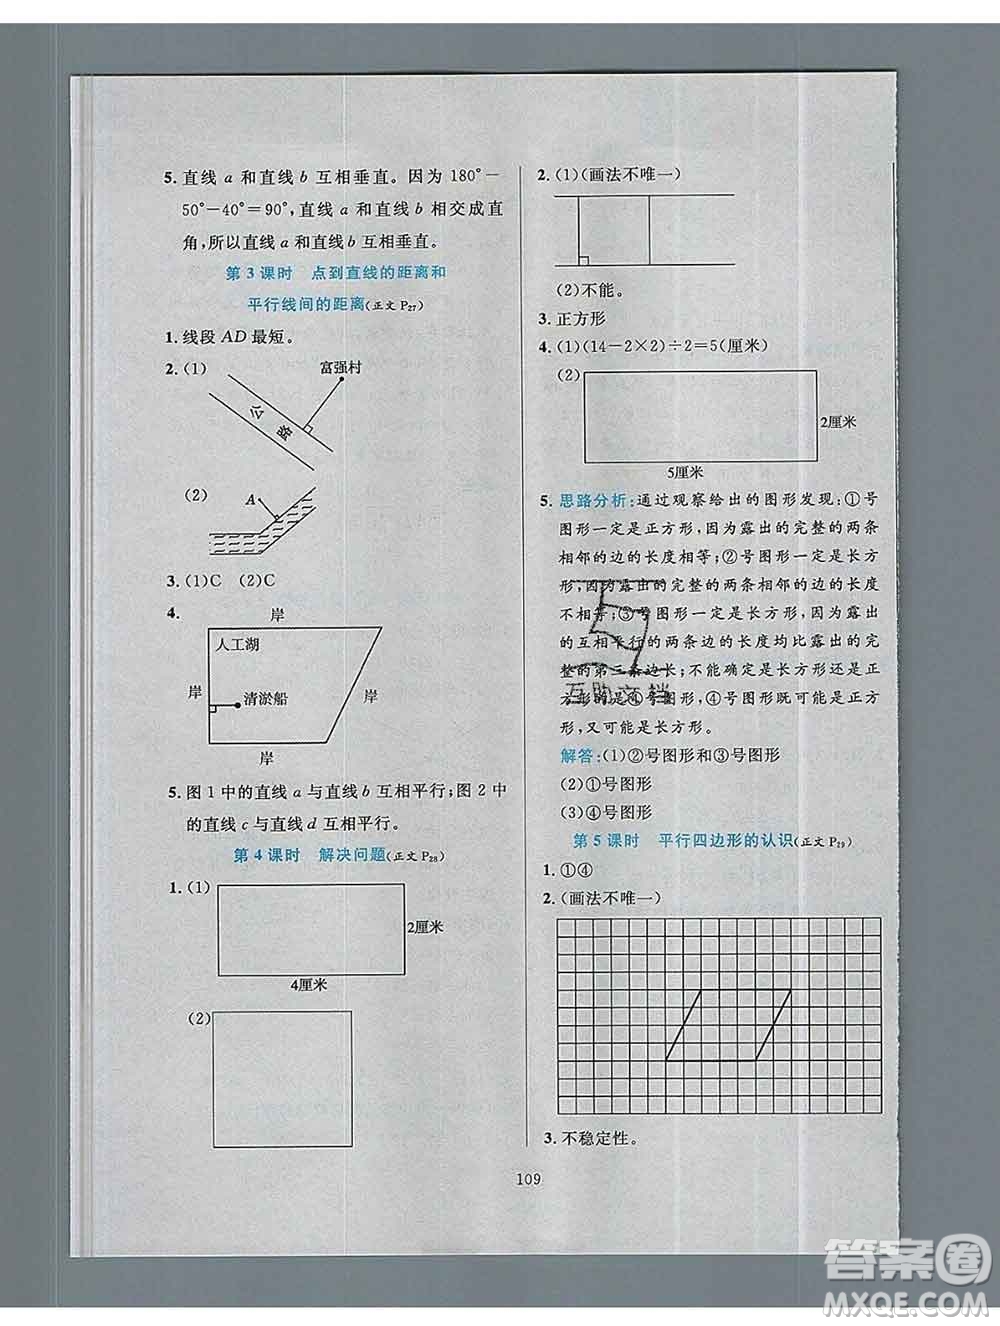 5. 直线 a 和直线 b 互相垂直。因为 180°－
50°－40°＝90°,直线 a 和直线 b 相交成直
角,所以直线 a 和直线 b 互相垂直。
第 3 课时　点到直线的距离和
平行线间的距离(正文 P27)
1. 线段 AD 最短。
2. (1)
富强村
公
路
(2)
A
3. (1)C　(2)C
4.
岸
人工湖
岸
清淤船
岸
岸
5. 图 1 中的直线 a 与直线 b 互相平行;图 2 中
的直线 c 与直线 d 互相平行。
第 4 课时　解决问题(正文 P28)
1. (1)
2厘米
4厘米
(2)
2. (1)(画法不唯一)
(2)不能。
3. 正方形
4. (1)(14－2×2)÷2＝5(厘米)
(2)
2厘米
5厘米
5. 思路分析:通过观察给出的图形发现:①号
图形一定是正方形,因为露出的完整的两条
相邻的边的长度相等;②号图形一定是长方
形,因为露出的完整的两条相邻的边的长度
不相等;③号图形一定是长方形,因为露出
的互相平行的两条边的长度均比露出的完
整的第三条边长;不能确定是长方形还是正
方形的是④号图形,④号图形既可能是正方
形,又可能是长方形。
解答:(1)②号图形和③号图形
(2)①号图形
(3)④号图形
第 5 课时　平行四边形的认识(正文 P29)
1. ①④
2. (画法不唯一)
3. 不稳定性。
109
互助文档
答案圈
MXQE.COM